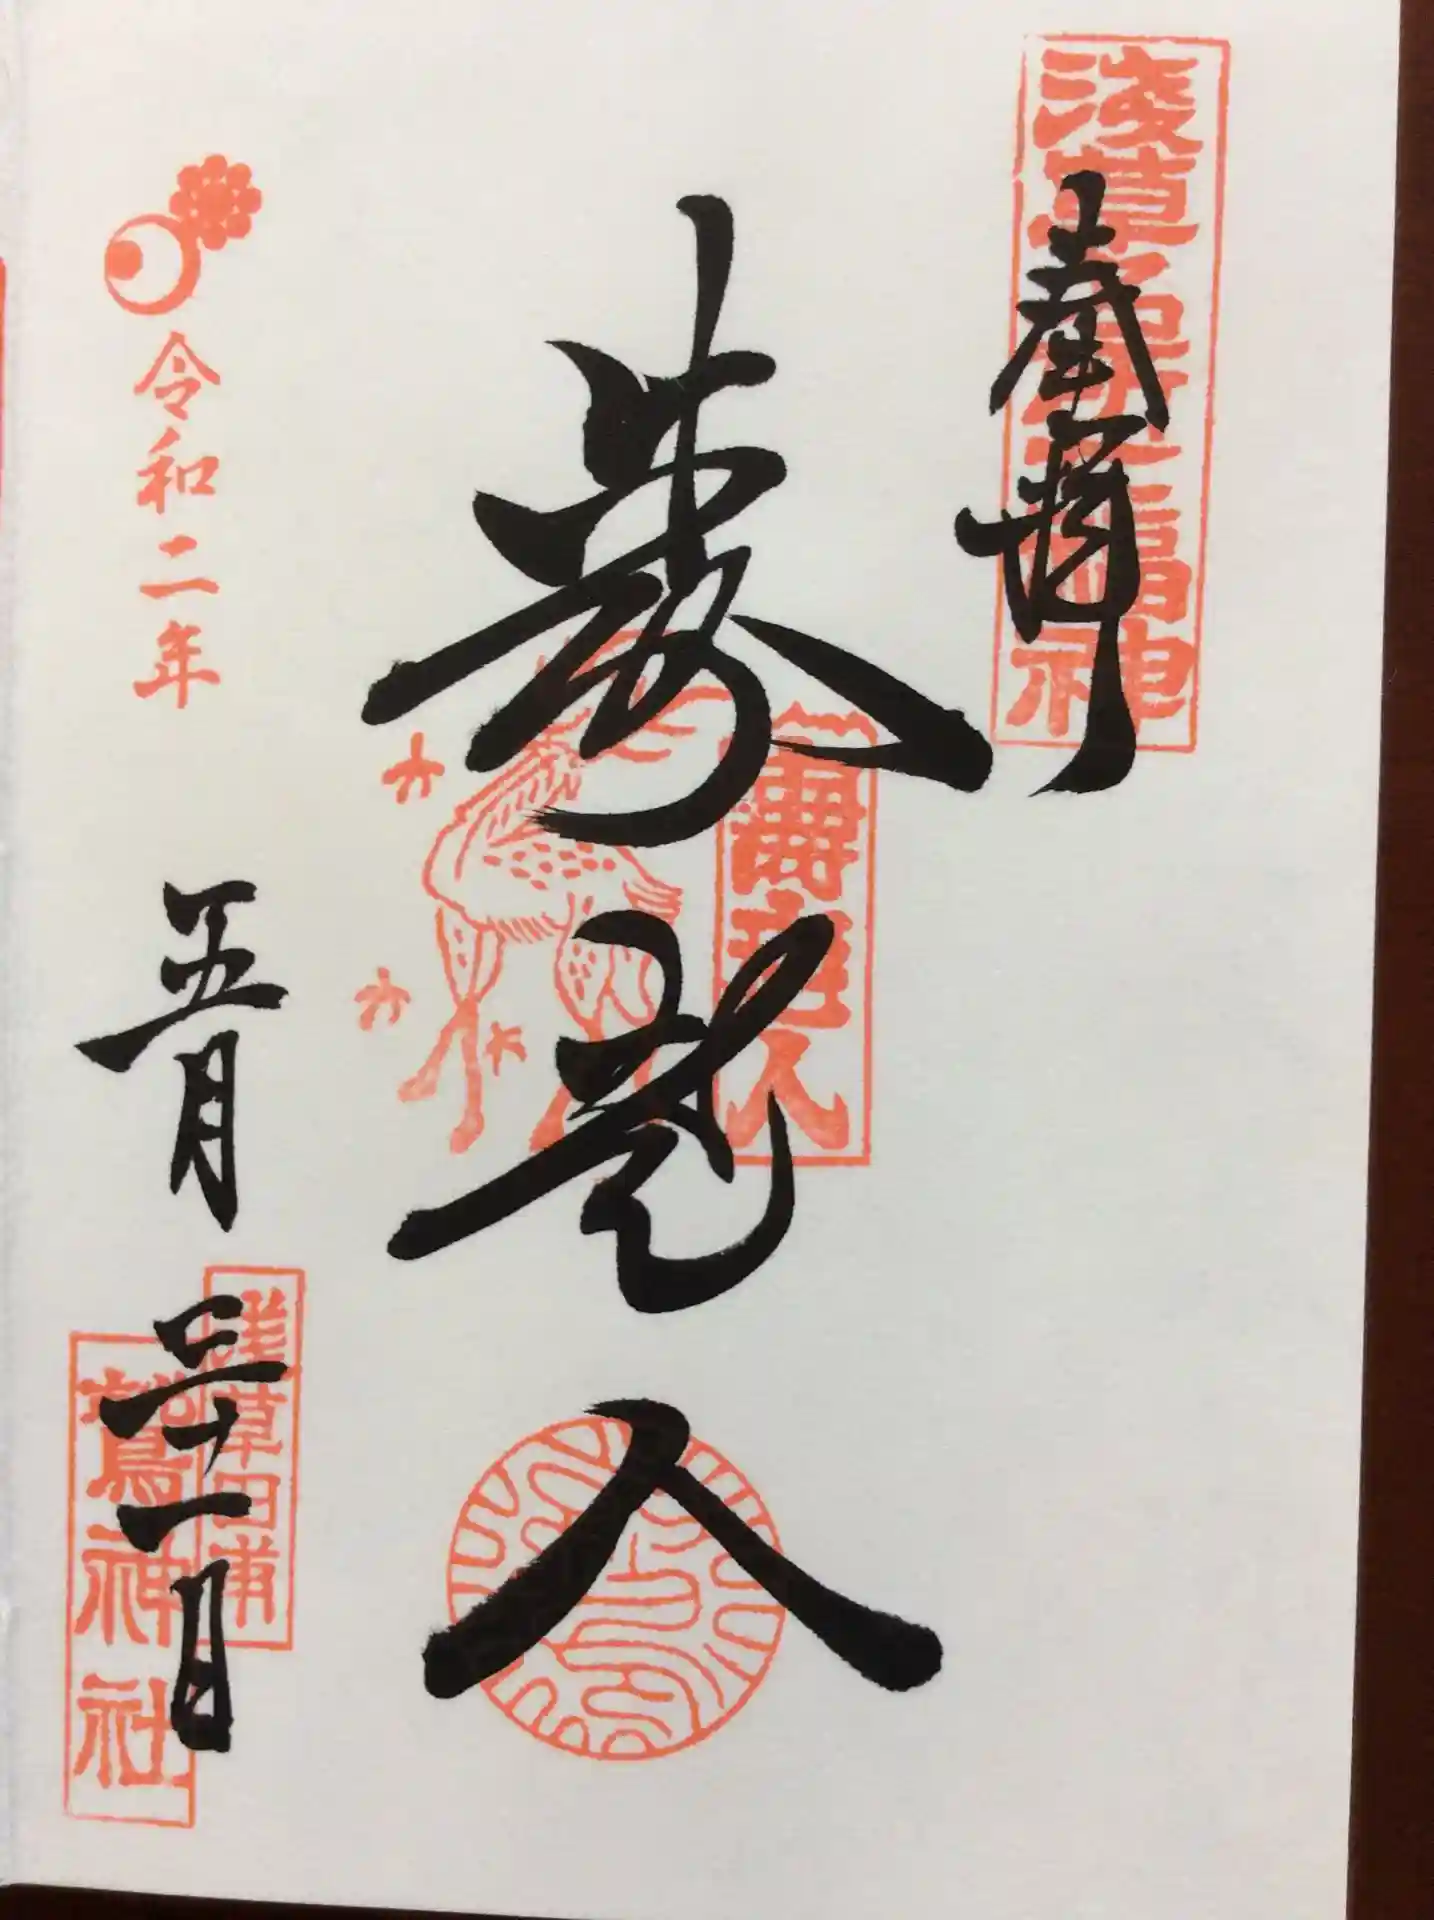 淺草名所七福神
奉拝
壽老人
寿老人
令和二年
五月三十一日
淺草田甫
鷲神社